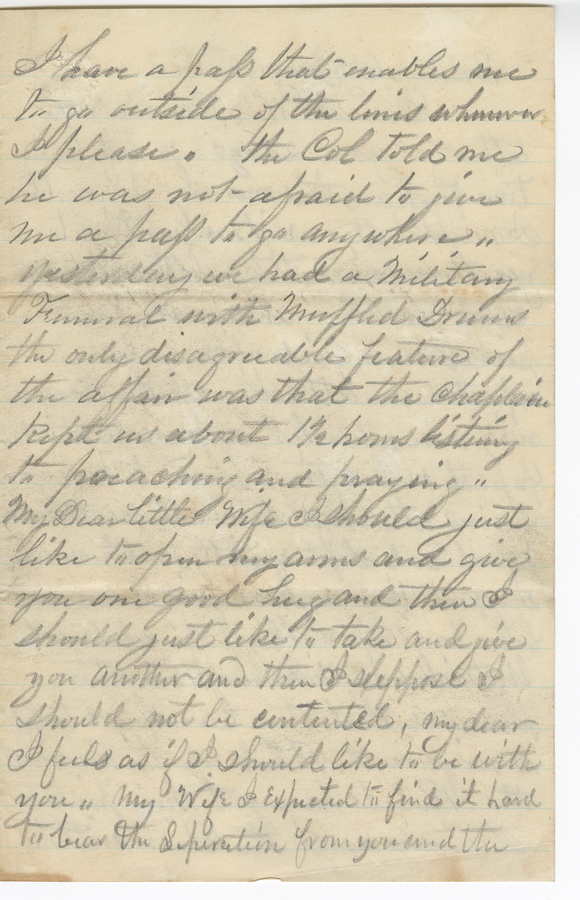 I have a pass that enables me
to go outside of the lines wherever
I please. the Col told me
he was not afraid to give
me a pass to go anywhere,,
yesterday we had a Military
Funeral with Muffled Drums
the only disagreeable feature of
the affair was that the Chaplain
kept us about 1½ hours listning
to preaching and praying,,
My Dear little Wife I should just
like to open my arms and give
you one good hug and then I
should just like to take and give
you another and then I suppose I
should not be contented, my dear
I feel as if I should like to be with
you,, My Wife I expected to find it hard
to bear the Seperation from you and the